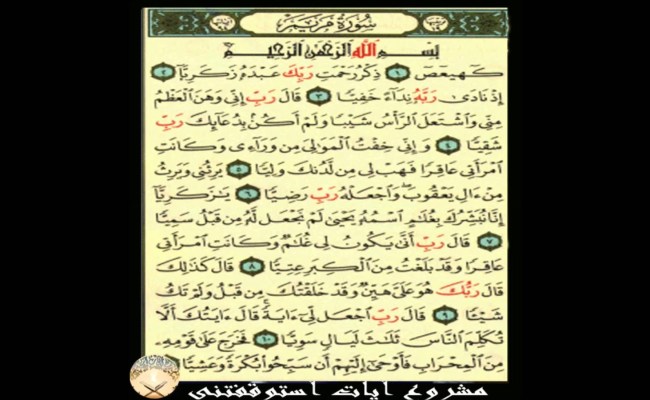 سُورَةُ مَرْيَم
بِسْمِ اللَّهِ الرَّحْمَٰنِ الرَّحِيمِ
كٓهيعٓصٓ ١ ذِكْرُ رَحْمَتِ رَبِّكَ عَبْدَهُ زَكَرِيَّا ٢
إِذْ نَادَىٰ رَبَّهُ نِدَآءً خَفِيًّا ٣ قَالَ رَبِّ إِنِّي وَهَنَ الْعَظْمُ
مِنِّي وَاشْتَعَلَ الرَّأْسُ شَيْبًا وَلَمْ أَكُنْ بِدُعَآئِكَ رَبِّ
شَقِيًّا ٤ وَإِنِّي خِفْتُ الْمَوَالِيَ مِنْ وَرَآءِى وَكَانَتِ
امْرَأَتِي عَاقِرًا فَهَبْ لِي مِنْ لَدُنْكَ وَلِيًّا ٥ يَرِثُنِي وَيَرِثُ
مِنْ ءَالِ يَعْقُوبَ وَاجْعَلْهُ رَبِّ رَضِيًّا ٦ يَٰزَكَرِيَّآ
إِنَّا نُبَشِّرُكَ بِغُلَٰمٍ اسْمُهُ يَحْيَىٰ لَمْ نَجْعَلْ لَهُ مِنْ قَبْلُ سَمِيًّا
٧ قَالَ رَبِّ أَنَّىٰ يَكُونُ لِي غُلَٰمٌ وَكَانَتِ امْرَأَتِي
عَاقِرًا وَقَدْ بَلَغْتُ مِنَ الْكِبَرِ عِتِيًّا ٨ قَالَ كَذَٰلِكَ
قَالَ رَبُّكَ هُوَ عَلَيَّ هَيِّنٌ وَقَدْ خَلَقْتُكَ مِنْ قَبْلُ وَلَمْ تَكُ
شَيْئًا ٩ قَالَ رَبِّ اجْعَلْ لِي ءَايَةً قَالَ ءَايَتُكَ أَلَّا
تُكَلِّمَ النَّاسَ ثَلَٰثَ لَيَالٍ سَوِيًّا ١٠ فَخَرَجَ عَلَىٰ قَوْمِهِ
مِنَ الْمِحْرَابِ فَأَوْحَىٰٓ إِلَيْهِمْ أَنْ سَبِّحُوا بُكْرَةً وَعَشِيًّا
مشروع ايات استوقفتني